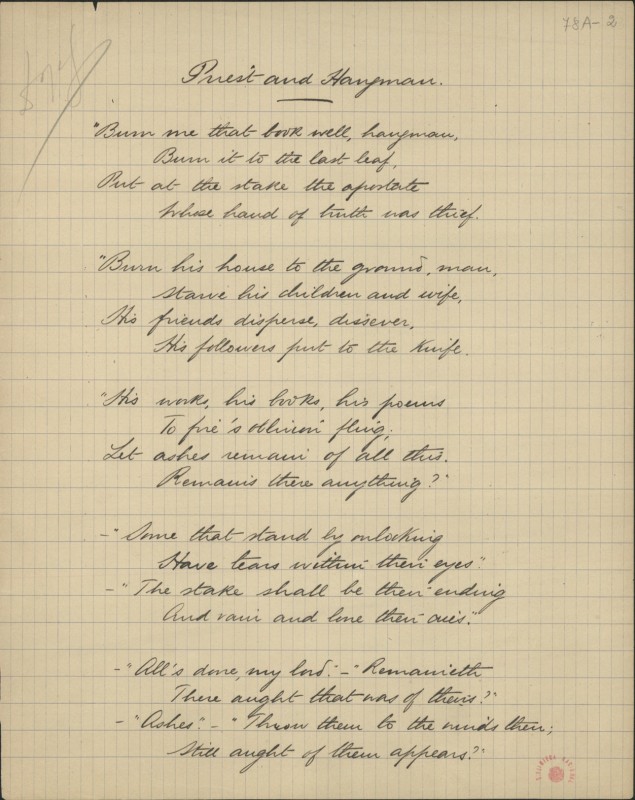 78A-2
Priest and Hangman.
"Burn me that book well, hangman,
Burn it to the last leaf,
Put at the stake the apostate
Whose hand of truth was thief.
"Burn his house to the ground, man,
Starve his children and wife,
His friends disperse, dissever,
His followers put to the knife.
"His works, his books, his poems
To fire's oblivion fling;
Let ashes remain of all this.
Remains there anything?"
—"Some that stand by onlooking
Have tears within their eyes".
—"The stake shall be their ending
And vain and lone their cries."
—"All's done, my lord." — "Remaineth
There aught that was of theirs?"
—"Ashes". — "Throw them to the winds then;
Still aught of them appears?"